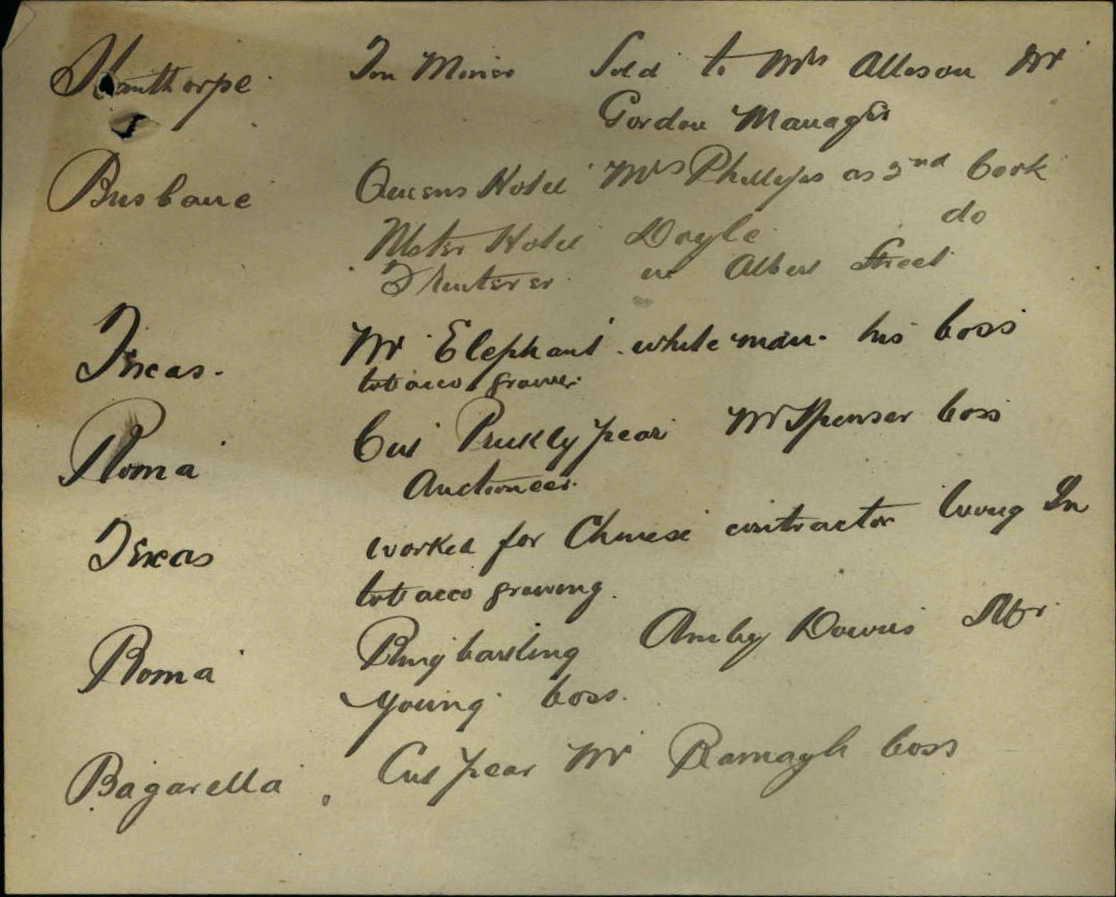 Stanthorpe Tin Miner Sold to Mrs Alleson Mr
Gordon Manager
Brisbane Queens Hotel Mrs Phillips as 2nd Cook
Hotel Doyle do
in Albert Street
Texas. Mr Elephant white man. his boss
tobacco grower.
Roma Cut Prickly pear Mr Spenser boss
Auctioneer.
Texas worked for Chinese contractor
tobacco growing.
Roma Ringbarking Amby Downs Mr
Young boss.
Bagarella. Cut pear Mr Ramagh boss